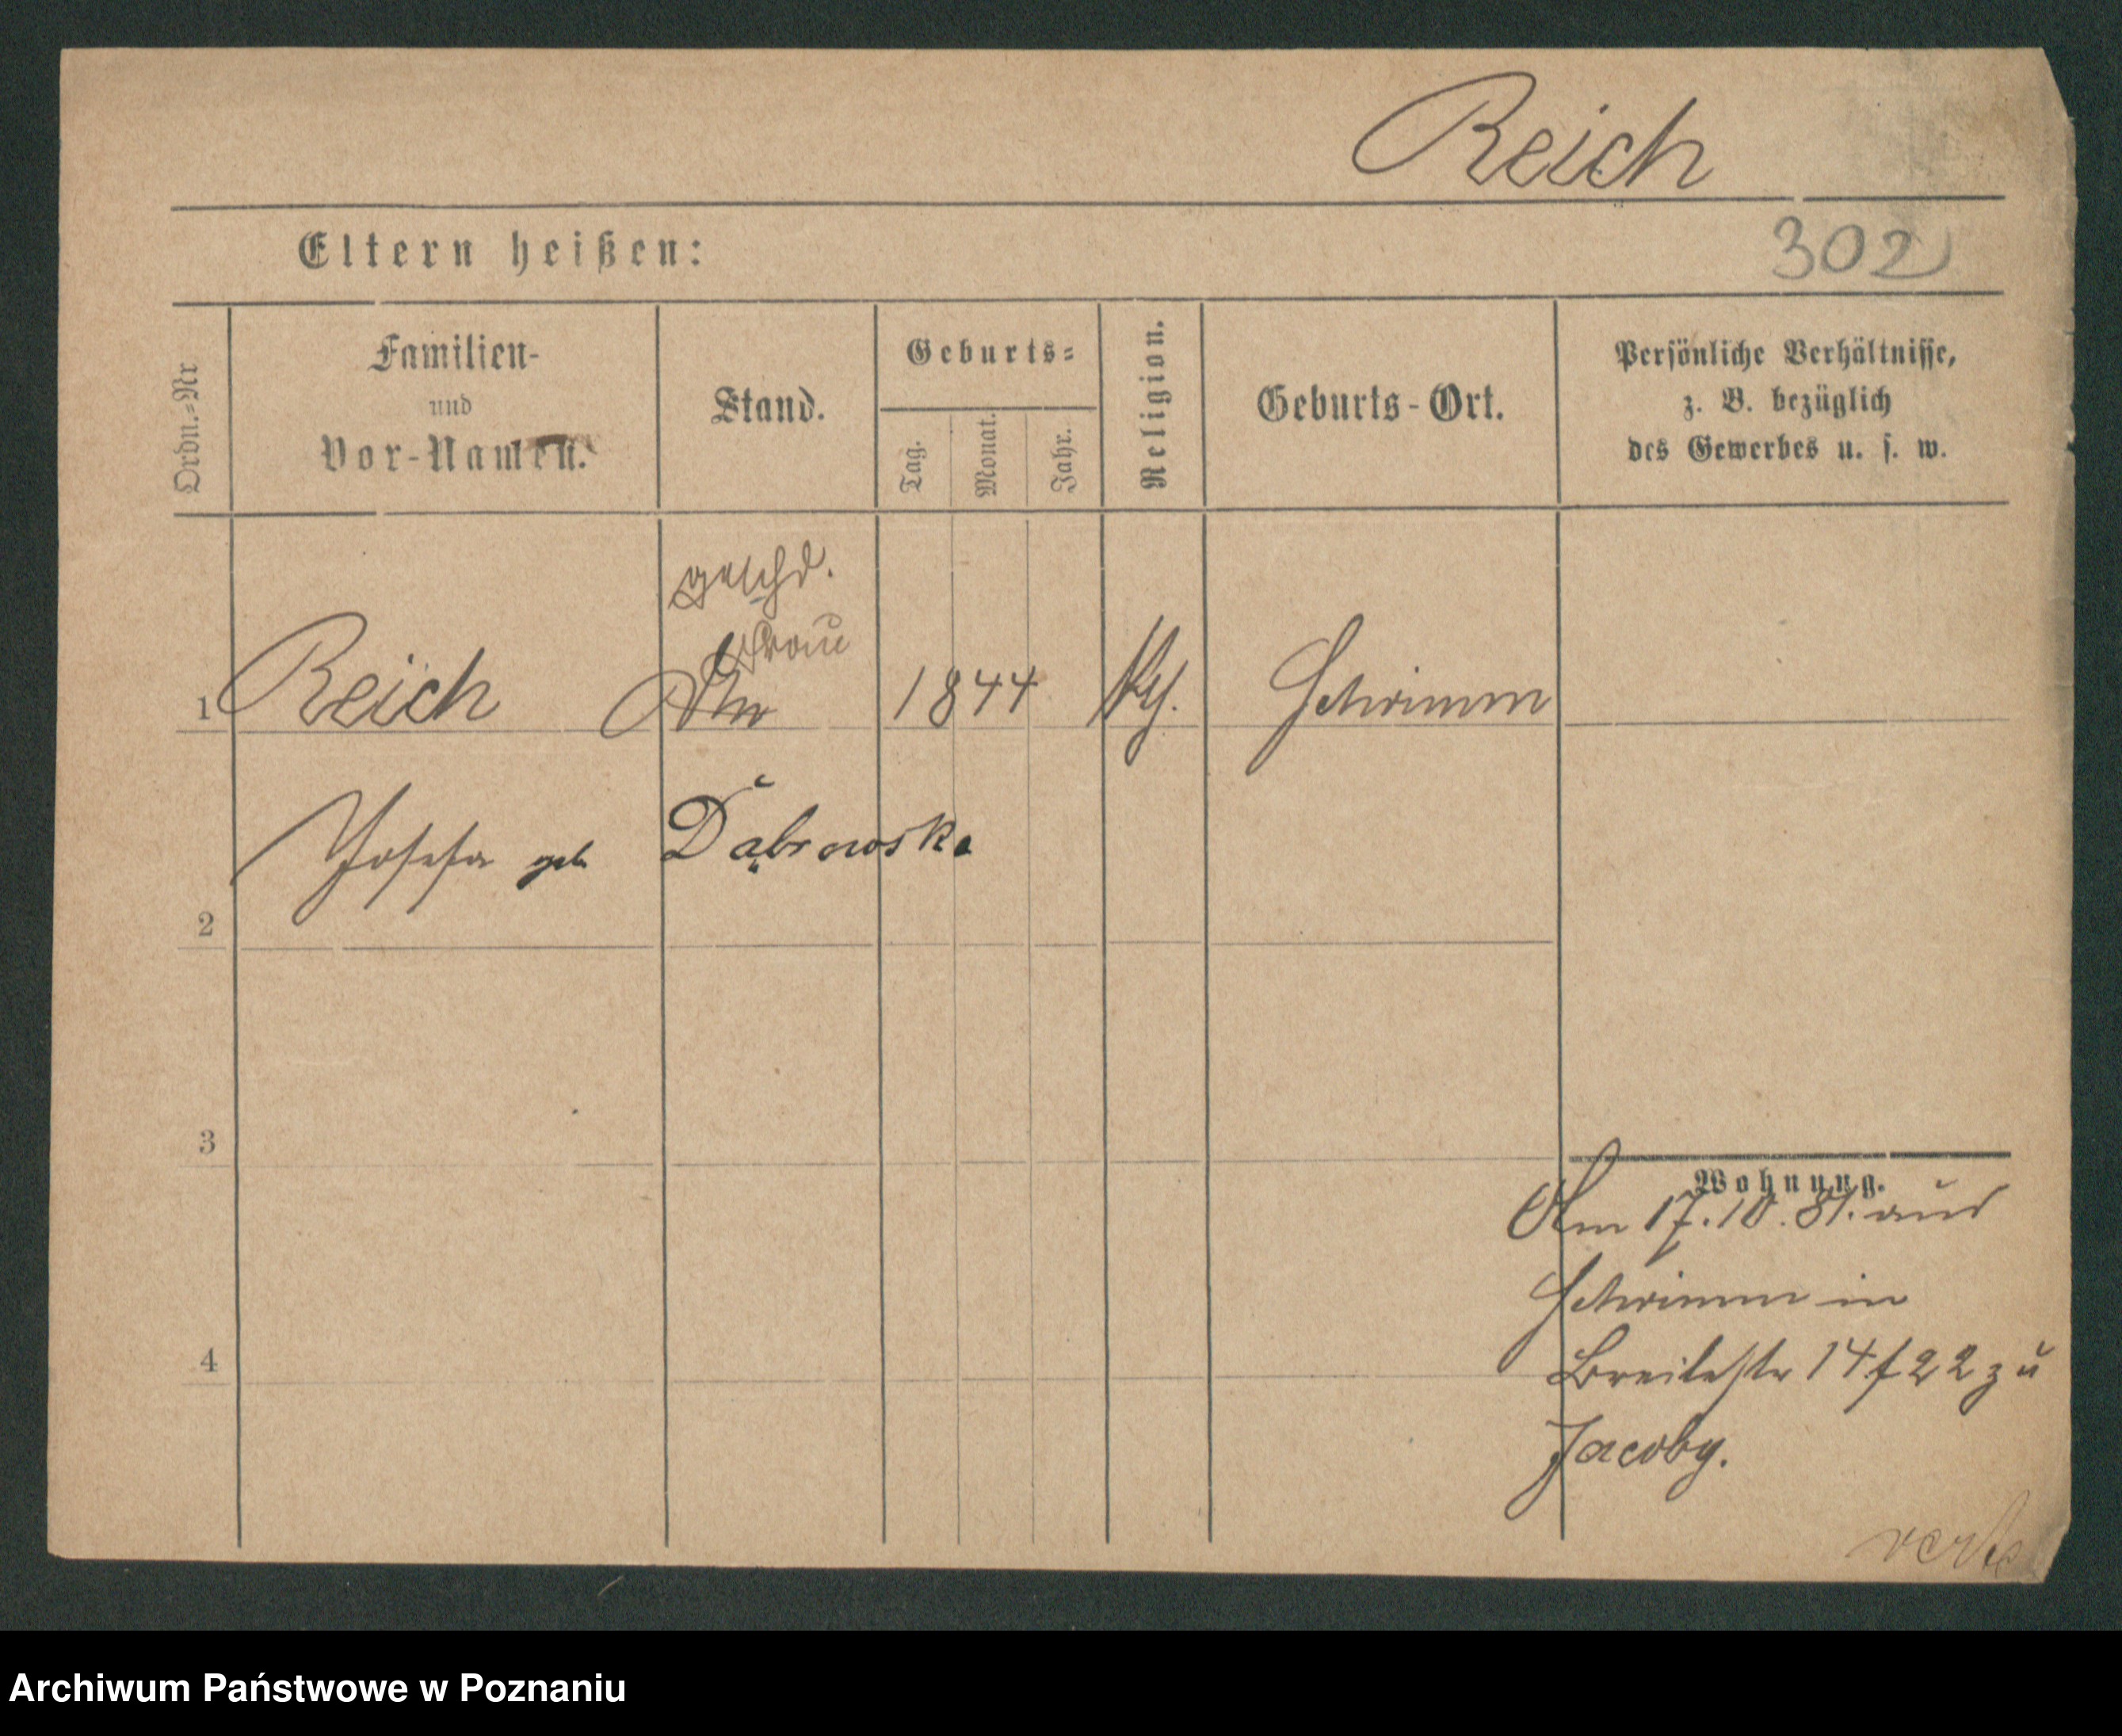 Reich
Eltern heißen:
302
Ordn.=Nr
Familien-
und
Vor-Namen.
Stand.
Geburts=
Tag.
Monat.
Jahr.
Religion.
Geburts-Ort.
Persönliche Verhältnisse,
z. B. bezüglich
des Gewerbes u. s. w.
geschd.
Frau
1 Reich 1844 Schrimm
Josefa geb Dąbrowska
2
3
4
Wohnung.
Am 17.10.81. aus
Schrimm in
Breitestr 14 f 22 zu
Jacoby.
verte
Archiwum Państwowe w Poznaniu